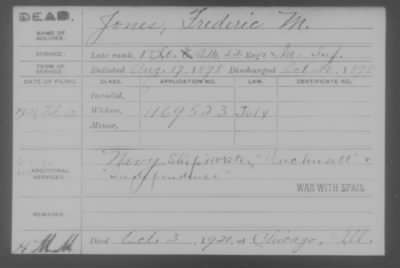 DEAD.
NAME OF SOLDIER:
Jones, Frederic M.
SERVICE:
Late rank, 1 Lt. & Regt. Inf.
TERM OF SERVICE:
Enlisted Aug. 17, 1898 Discharged Oct. 30, 1898
DATE OF FILING.
CLASS.
APPLICATION NO.
LAW.
CERTIFICATE NO.
Invalid,
Widow, 1169523
Minor,
ADDITIONAL SERVICES:
Navy Ship "Wachusett" &
"Independence"
WAR WITH SPAIN
REMARKS:
Died Oct. 3, 1920, at Chicago, Ill.